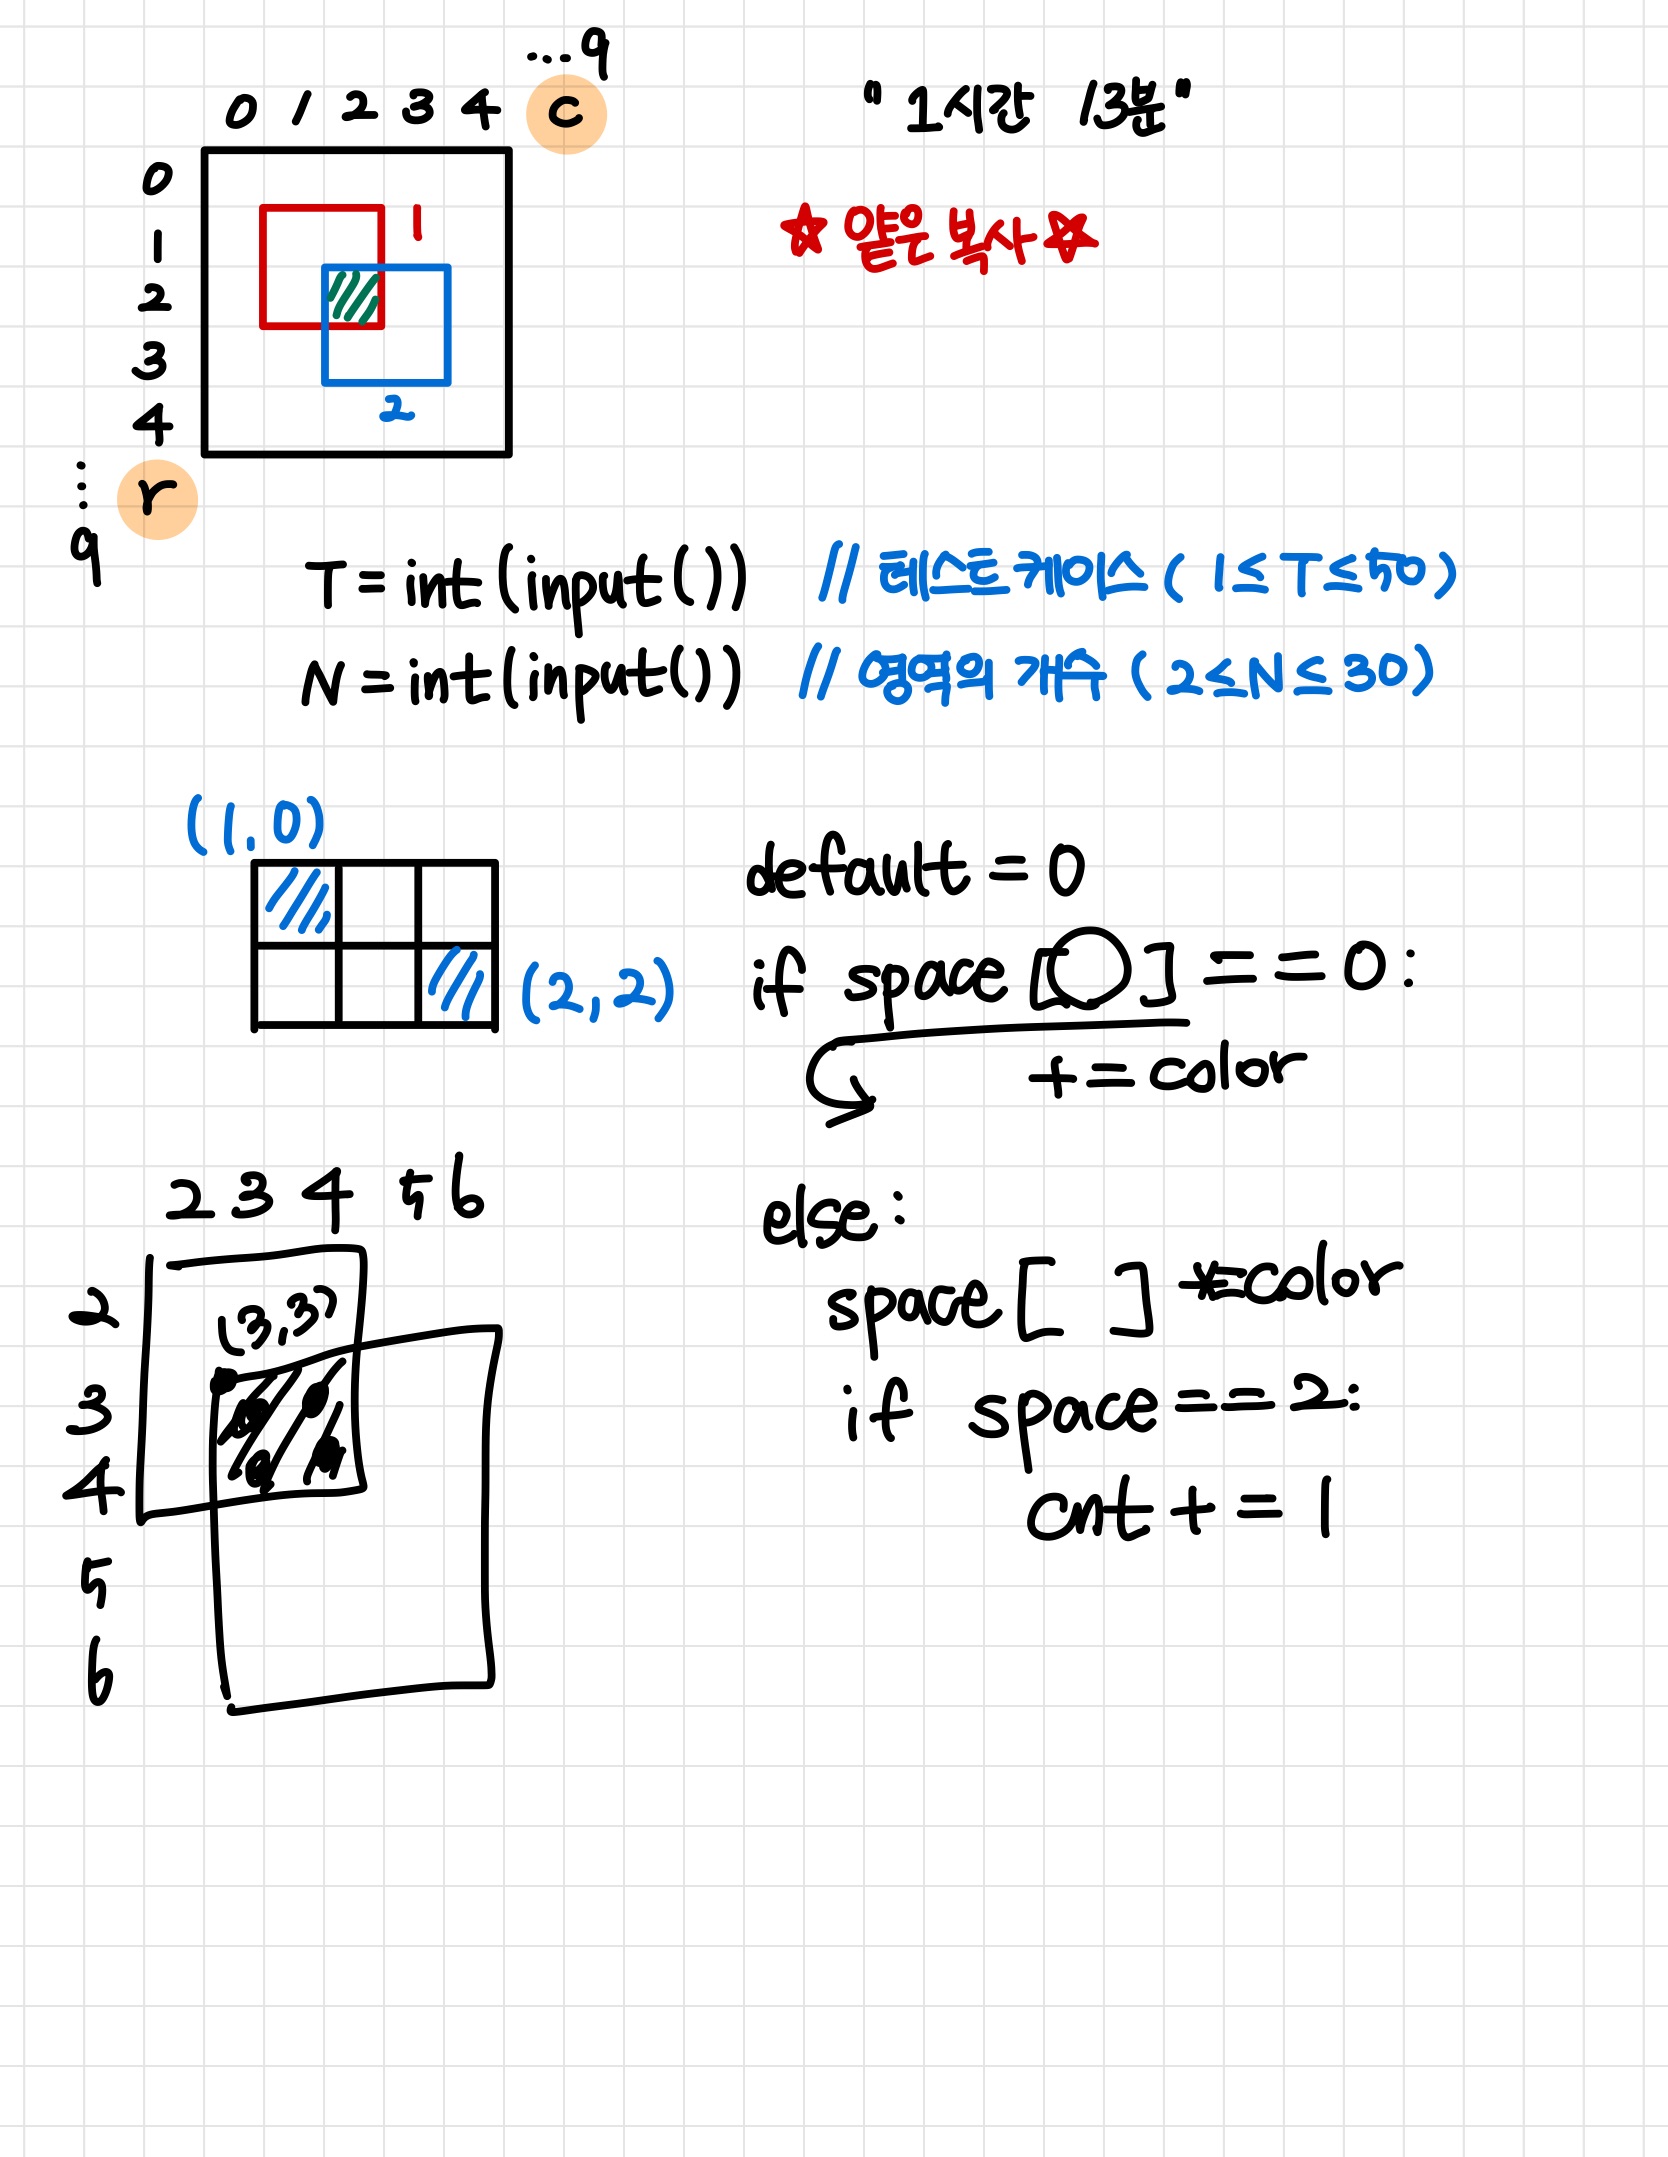 ...9
0 1 2 3 4 c
"1시간 13분"
0
1
2
3
4
r
⋮
9
1
2
☆ 얕은 복사 ☆
T = int(input()) // 테스트 케이스 ( 1 ≤ T ≤ 50 )
N = int(input()) // 영역의 개수 ( 2 ≤ N ≤ 30 )
(1,0)
(2,2)
default = 0
if space [○] == 0:
+= color
else:
space[ ] *=color
if space == 2:
cnt += 1
2 3 4 5 6
2
3
4
5
6
(3,3)